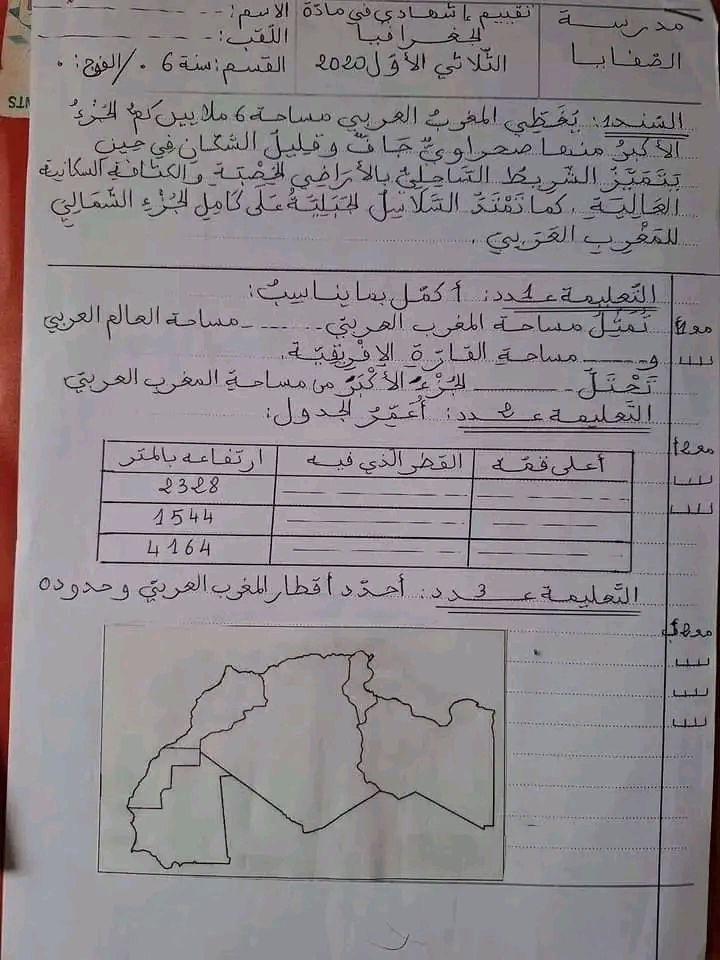 مدرسة الصفايا
تقييم إشهادي في مادّة الجغرافيا
الثّلاثي الأوّل 2020
الاسم: - - - - - -
اللّقب: - - - - - -
القسم: سنة 6 /الفوج:
السّند 1: يُغَطِّي المغربُ العربي مساحة 6 ملايين كم² الجُزْءُ
الأكبرُ منها صحراويٌّ جَافٌّ وقليلُ السّكّان في حين
يَتَمَيَّزُ الشّريطُ السّاحِليُّ بالأراضي الخِصْبَة والكثافة السكانية
العَالِيَةِ. كما تَمْتَدُّ السَّلَاسِلُ الجَبَلِيَّةُ عَلَى كَامِلِ الجُزْءِ الشَّمَالِي
للمَغْرِبِ العَرَبي.
التّعليمة عـ1ـدد: أكمّل بما يناسبُ:
تُمَثِّلُ مساحة المغرب العربي - - - - مساحة العالم العربي
و - - - - مساحةِ القارّةِ الإفْريقيّة.
تَحْتَلُّ - - - - الجُزْءَ الأكْبَرَ من مساحةِ المغرب العربيّ
التّعليمة عـ2ـدد: أُعَمِّرُ الجدول:
أعلى قمّة | القطر الذي فيه | ارتفاعه بالمتر
2328
1544
4164
التّعليمة عـ3ـدد: أحدّد أقطار المغرب العربيّ وحدوده
مع1أ
مع2أ
مع2ب